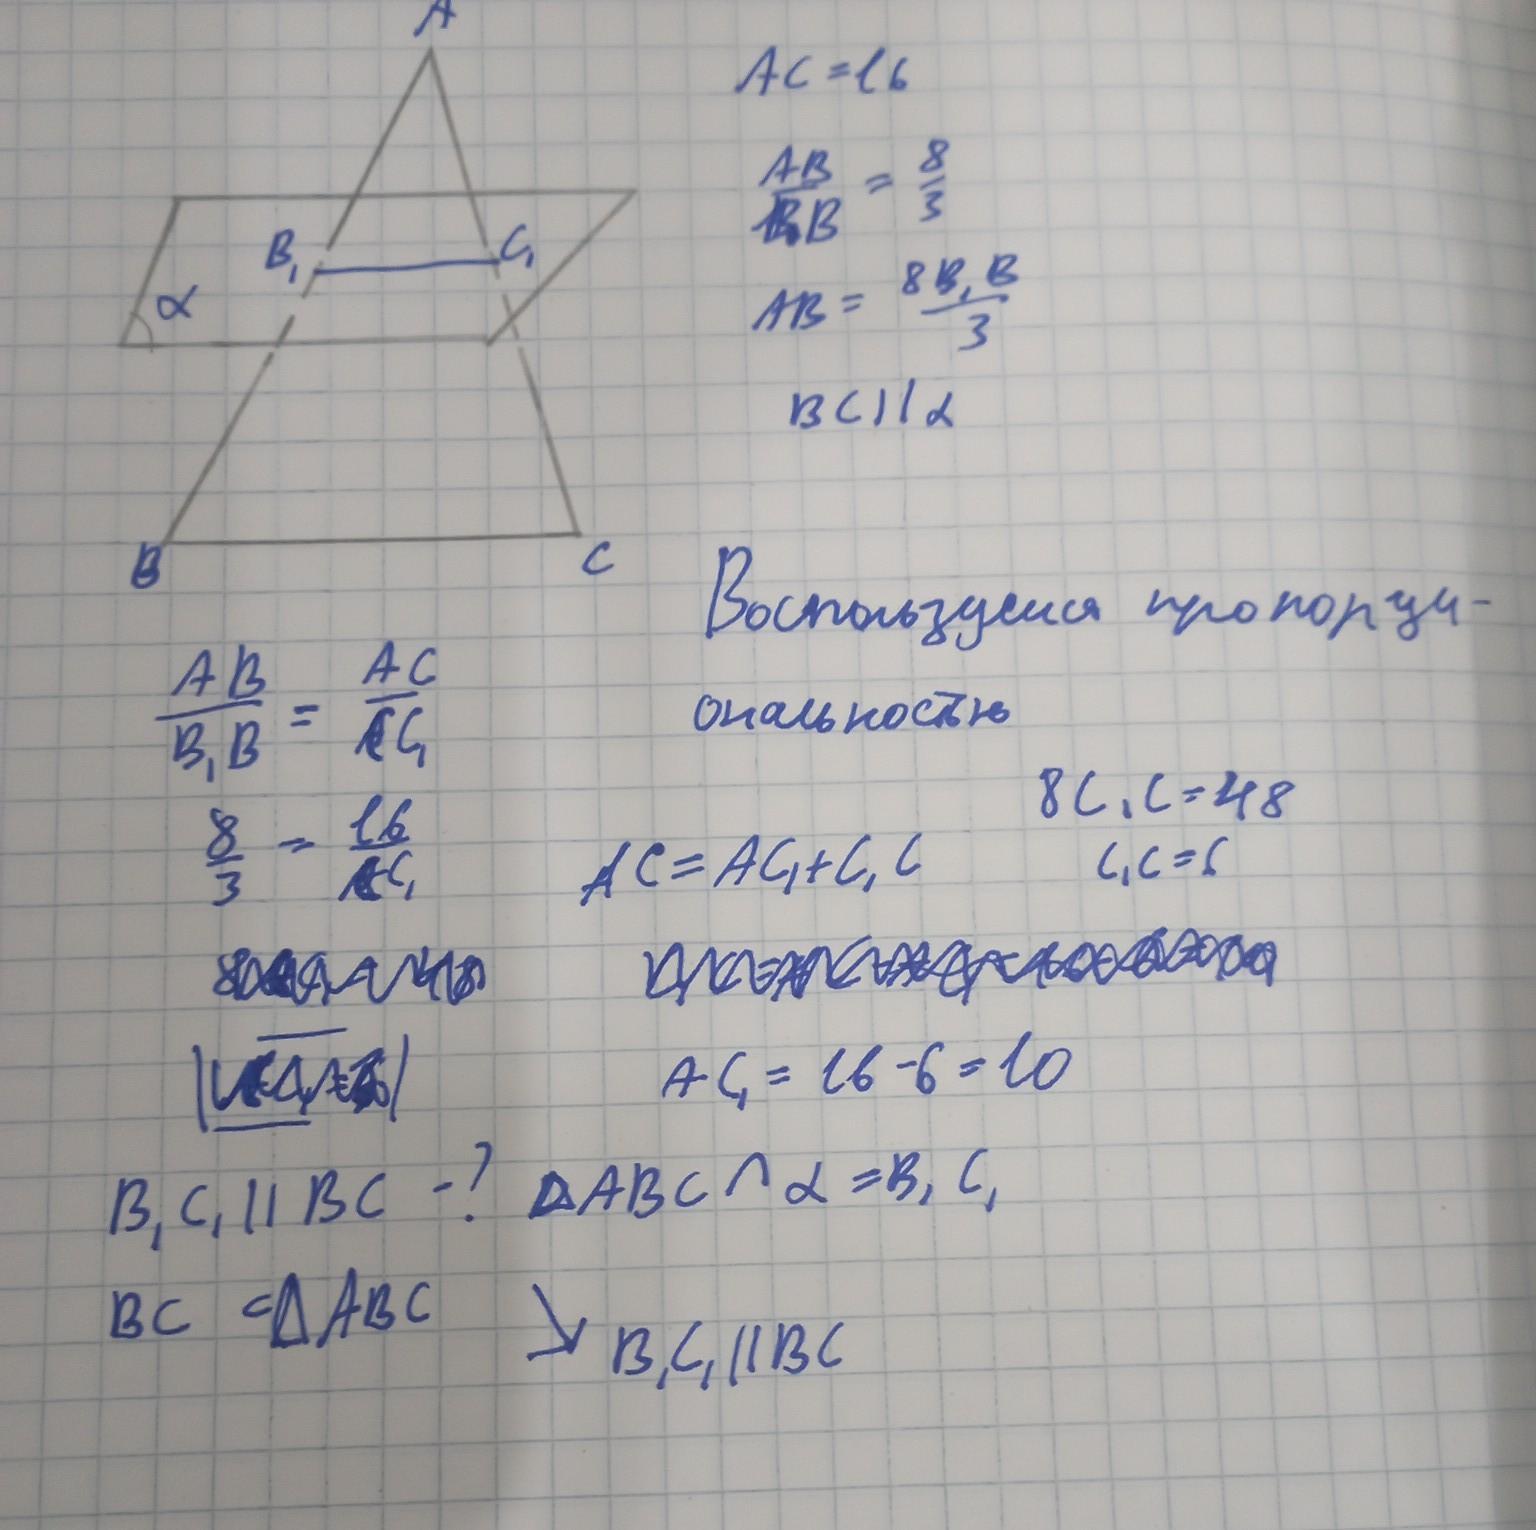 A
AC = 16
AB / B₁B = 8/3
B₁ C₁
α
AB = 8B₁B / 3
BC || α
B C
Воспользуемся пропорци-
ональностью
AB / B₁B = AC / CC₁
8/3 = 16 / CC₁
8C₁C = 48
AC = AC₁ + C₁C
C₁C = 6
AC₁ = 16 - 6 = 10
B₁C₁ || BC - ? △ABC ∩ α = B₁C₁
BC ⊂ △ABC
↘ B₁C₁ || BC